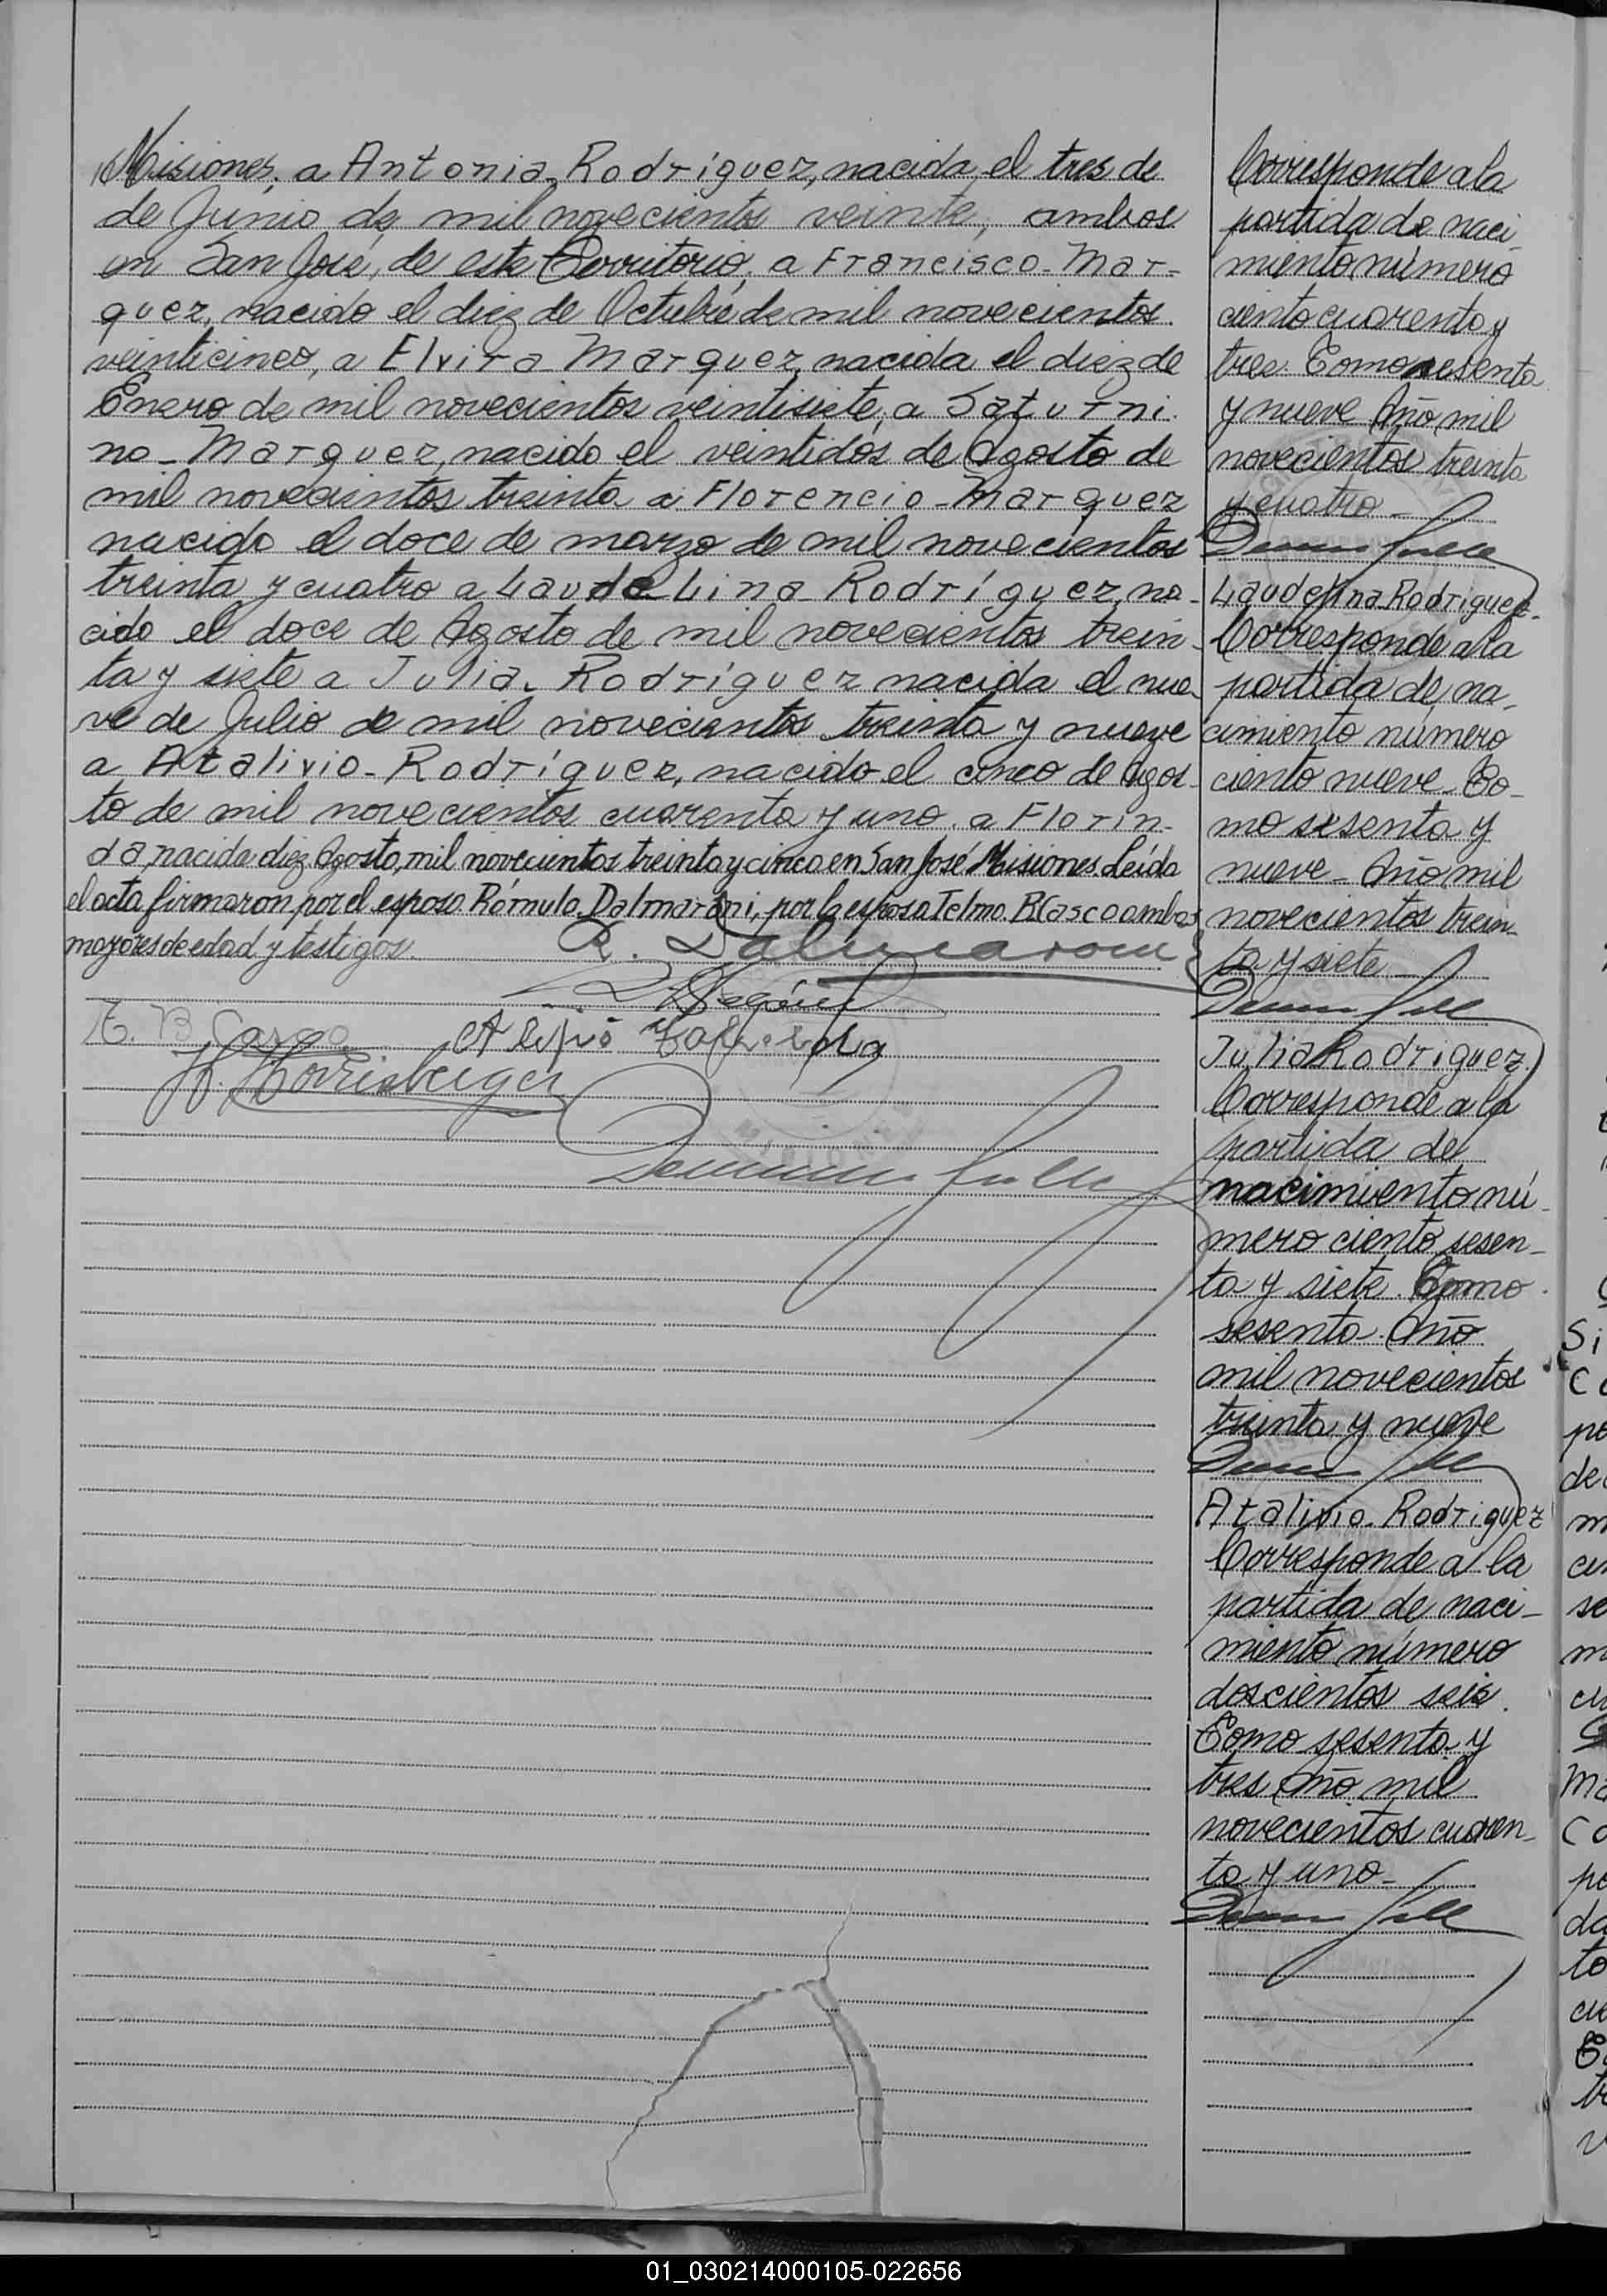 Misiones, a Antonia Rodríguez, nacida el tres de
de Junio de mil novecientos veinte, ambos
en San José, de este Territorio, a Francisco Mar-
quez, nacido el diez de Octubre de mil novecientos
veinticinco, a Elvira Marquez, nacida el diez de
Enero de mil novecientos veintisiete, a Saturni
no Marquez, nacido el veintidos de Agosto de
mil novecientos treinta a Florencio Marquez
nacido el doce de marzo de mil novecientos
treinta y cuatro a Laudelina Rodríguez, na-
cido el doce de Agosto de mil novecientos trein-
ta y siete a Julia Rodríguez nacida el nue-
ve de Julio de mil novecientos treinta y nueve
a Atalivio Rodríguez, nacido el cinco de Agos-
to de mil novecientos cuarenta y uno a Florin-
da nacida diez Agosto, mil novecientos treinta y cinco en San José Misiones. Leída
el acta firmaron por el esposo Rómulo Dalmaroni, por la esposa Telmo B. Casco ambos
mayores de edad y testigos.
R. Dalmaroni
T. B. Casco
Corresponde a la
partida de naci-
miento número
ciento cuarenta y
tres Tomo sesenta
y nueve Año mil
novecientos treinta
y cuatro
Laudelina Rodriguez
Corresponde a la
partida de na-
cimiento número
ciento nueve To-
mo sesenta y
nueve Año mil
novecientos trein-
ta y siete
Julia Rodriguez
Corresponde a la
partida de
nacimiento nú-
mero ciento sesen-
ta y siete. Tomo
sesenta. Año
mil novecientos
treinta y nueve
Atalivio Rodriguez
Corresponde a la
partida de naci-
miento número
doscientos seis.
Tomo sesenta y
tres Año mil
novecientos cuaren-
ta y uno
01_030214000105-022656